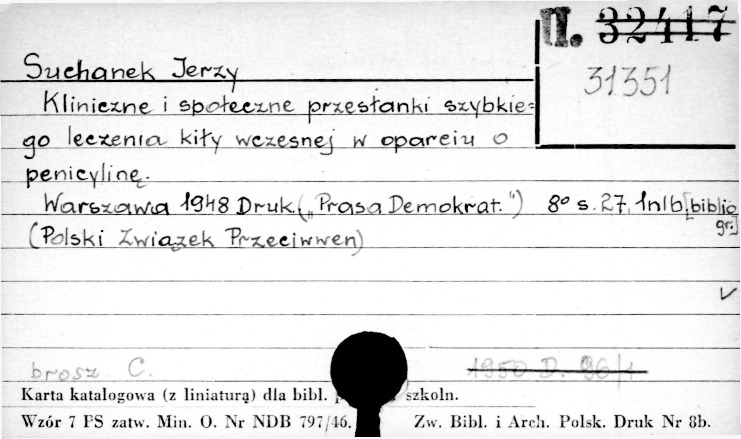 II. 32417
31351
Suchanek Jerzy
Kliniczne i społeczne przesłanki szybkie=
go leczenia kiły wczesnej w oparciu o
penicylinę.
Warszawa 1948 Druk. („Prasa Demokrat.") 8° s. 27, 1nlb [biblio
gr.]
(Polski Związek Przeciwwen)
brosz C. 1950 D. 96/1
Karta katalogowa (z liniaturą) dla bibl. szkoln.
Wzór 7 PS zatw. Min. O. Nr NDB 797/46. Zw. Bibl. i Arch. Polsk. Druk Nr 8b.